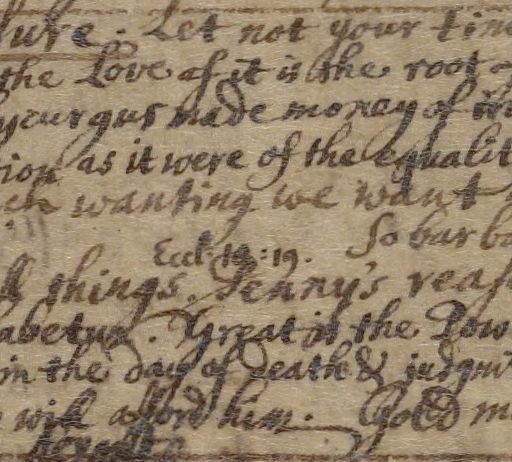 ure. Let not your time
the Love of it is the root
ycurgus made money of
tion as it were of the equalit
ch wanting we want
Eccl. 10:19. So barba
ll things, Penny's reas
abetur. Great is the Pow
in the day of death & judgm
will afford him. Gold